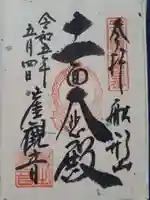 奉拝
船形山
十一面大悲殿
崖観音
令和五年
五月四日